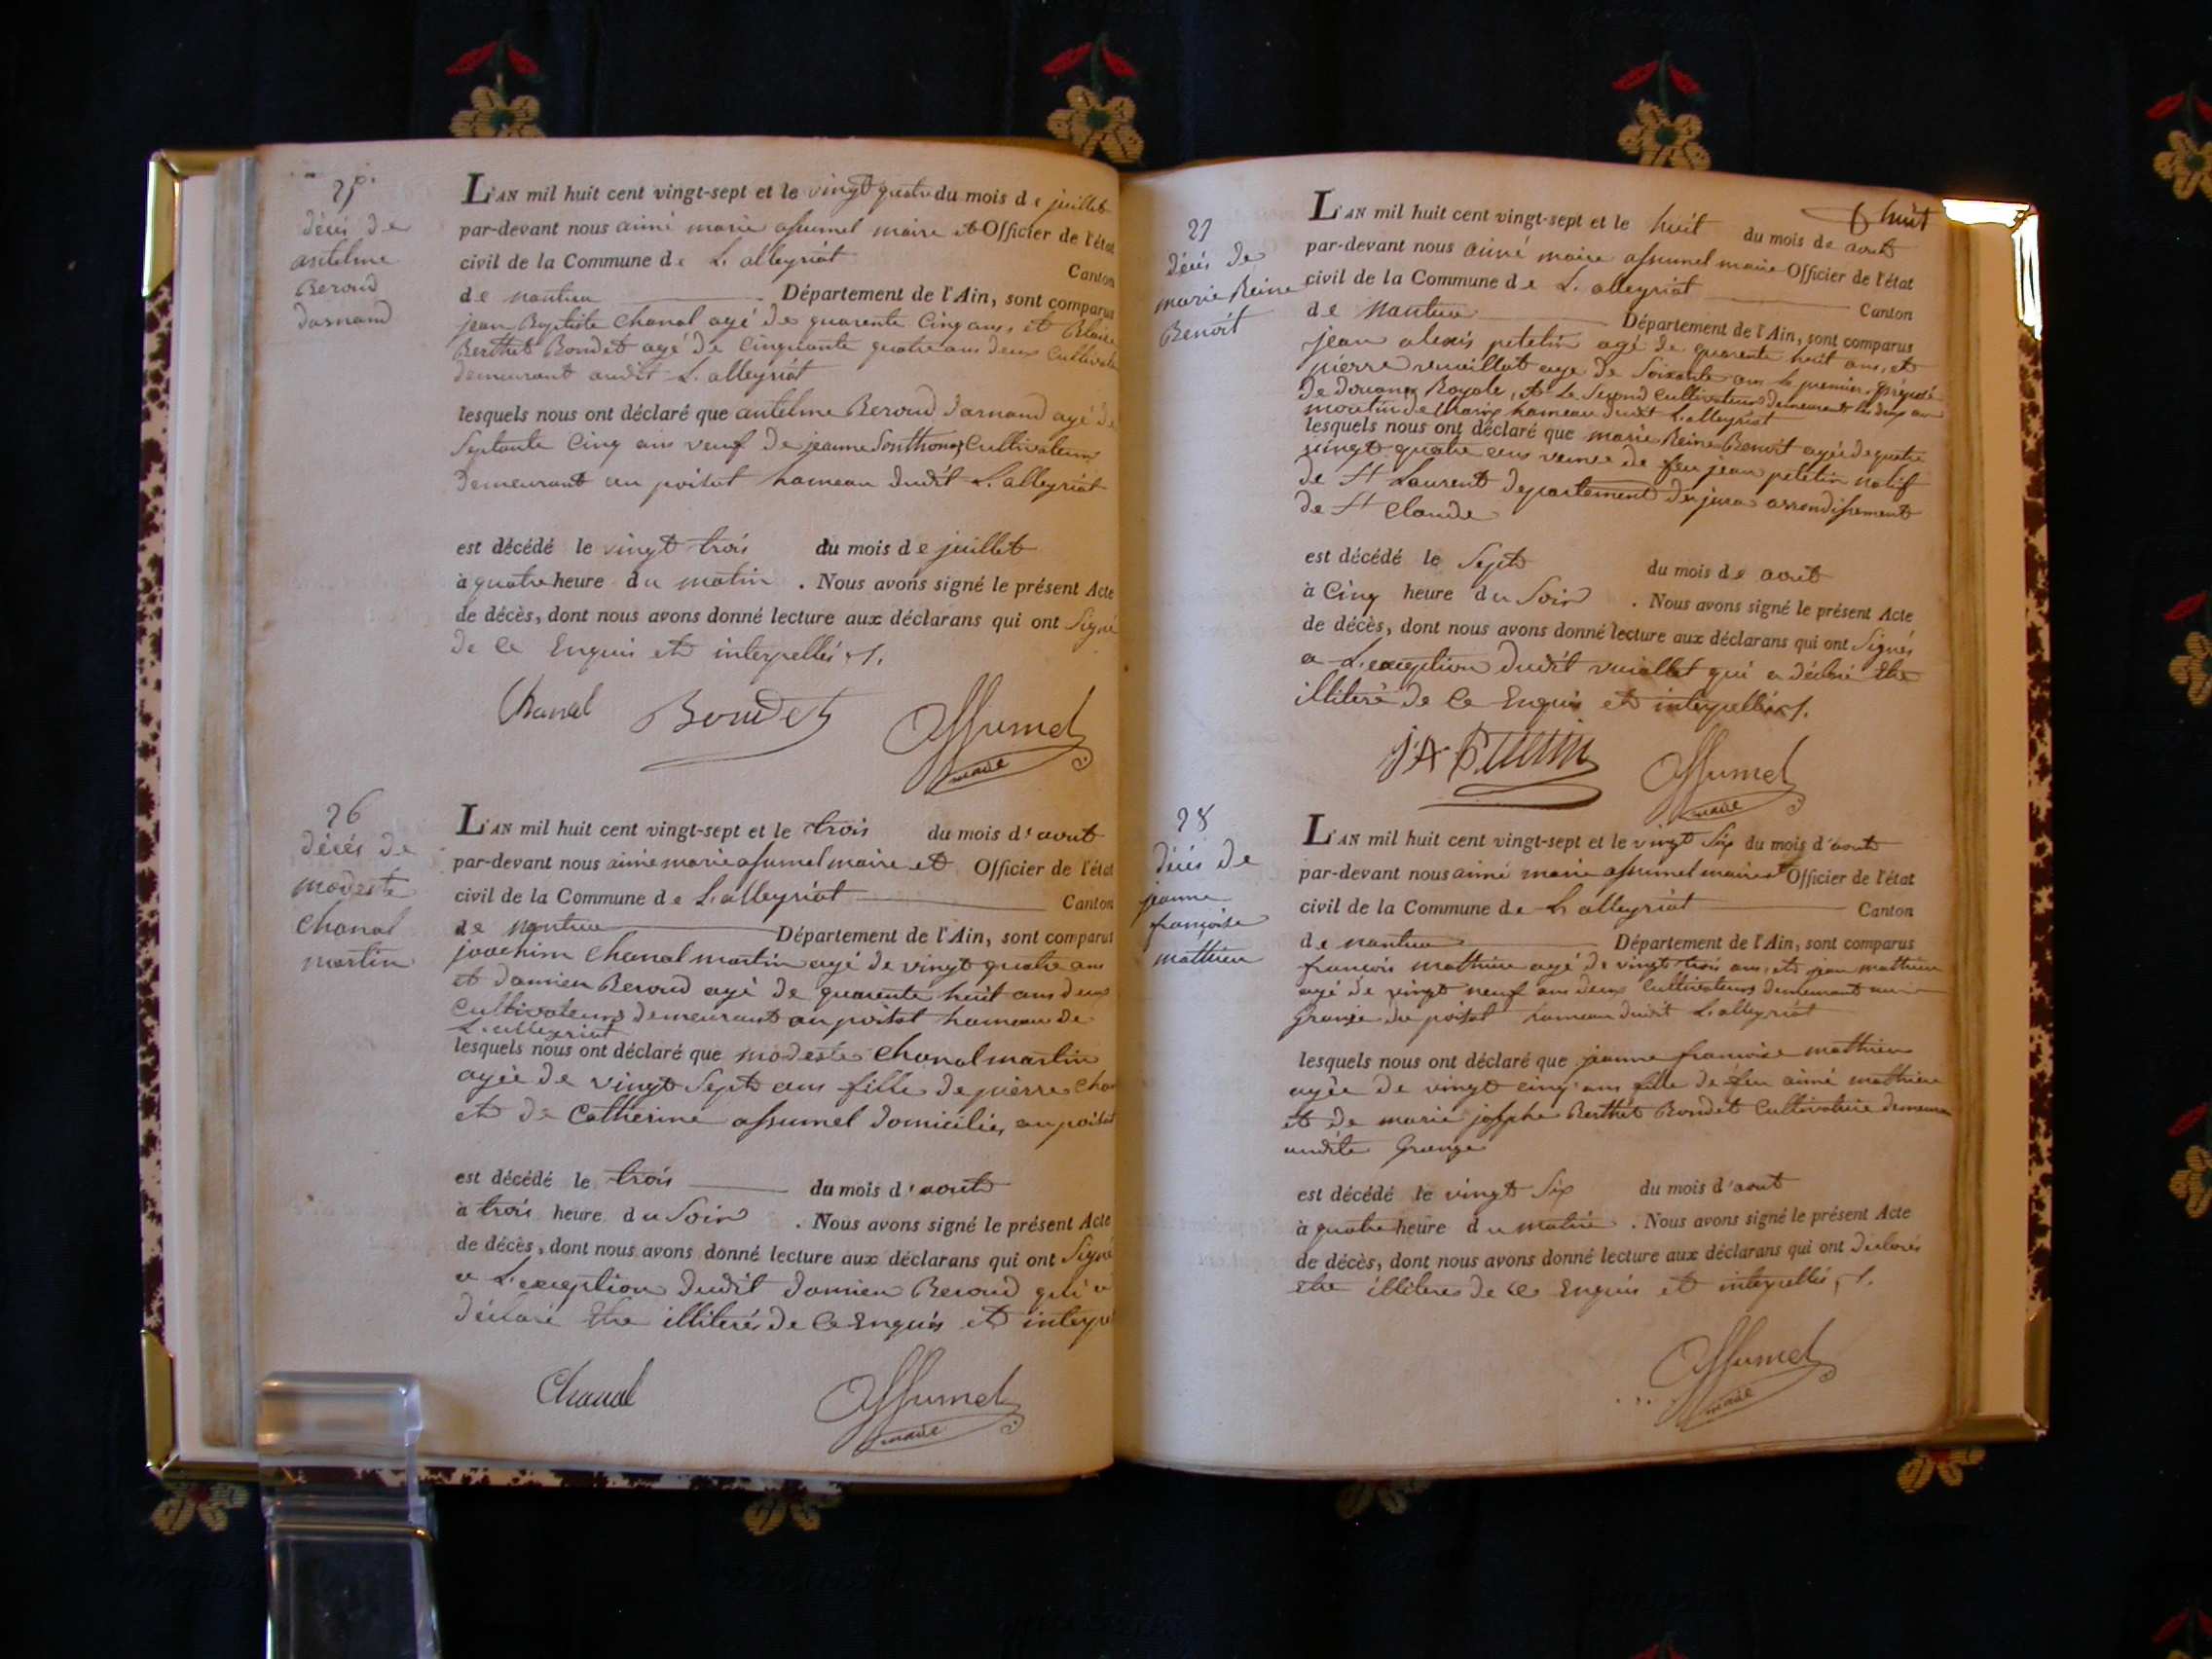 25
décès de
antelme
Beroud
darnand
L'AN mil huit cent vingt-sept et le vingt quatre du mois de juillet
par-devant nous aimé marie assumel maire et Officier de l'état
civil de la Commune de L'alleyriat Canton
de nantua Département de l'Ain, sont comparus
jean Baptiste Chanal agé de quarente Cinq ans, et Blaise
Berthet Bondet agé de Cinquante quatre ans deux Cultivate
demeurant audit L'alleyriat
lesquels nous ont déclaré que antelme Beroud darnand agé de
Septante Cinq ans veuf de jeanne Sonthonax Cultivateur
demeurant au poizat hameau dudit L'alleyriat
est décédé le vingt trois du mois de juillet
à quatre heure du matin . Nous avons signé le présent Acte
de décès, dont nous avons donné lecture aux déclarans qui ont Signé
de Ce Enquis et interpellés /.
Chanal Bondet Assumel
maire
26
décès de
modeste
Chanal
martin
L'AN mil huit cent vingt-sept et le trois du mois d'aout
par-devant nous aimé marie assumel maire et Officier de l'état
civil de la Commune de L'alleyriat Canton
de nantua Département de l'Ain, sont comparus
joachim Chanal martin agé de vingt quatre ans
et damien Beroud agé de quarente huit ans deux
Cultivateurs demeurant au poizat hameau de
L'alleyriat
lesquels nous ont déclaré que modeste Chanal martin
agée de vingt Sept ans fille de pierre Cha
et de Catherine assumel domiciliés au poizat
est décédé le trois du mois d'aout
à trois heure du Soir . Nous avons signé le présent Acte
de décès, dont nous avons donné lecture aux déclarans qui ont Signé
a L'exception dudit damien Beroud qui a
déclaré Etre illiterés de Ce Enquis et interpe
Chanal Assumel
maire
huit
27
décès de
marie Reine
Benoit
L'AN mil huit cent vingt-sept et le huit du mois de aout
par-devant nous aimé marie assumel maire Officier de l'état
civil de la Commune de L'alleyriat Canton
de Nantua Département de l'Ain, sont comparus
jean alexis petetin agé de quarente huit ans, et
pierre vuaillat agé de Soixante ans le premier préposé
de douanes Royale, et Le Second Cultivateur demeurant les deux au
moulin de Charix hameau dudit L'alleyriat
lesquels nous ont déclaré que marie Reine Benoit agée de quatre
vingt quatre ans veuve de feu jean petetin natif
de St Laurent departement du jura arrondissement
de St Claude
est décédé le Sept du mois de aout
à Cinq heure du Soir . Nous avons signé le présent Acte
de décès, dont nous avons donné lecture aux déclarans qui ont Signés
a L'exception dudit vuaillat qui a déclaré Etre
illiteré de Ce Enquis et interpellés /.
Assumel
maire
28
décès de
jeanne
françoise
mathieu
L'AN mil huit cent vingt-sept et le vingt Six du mois d'aout
par-devant nous aimé marie assumel maire et Officier de l'état
civil de la Commune de L'alleyriat Canton
de nantua Département de l'Ain, sont comparus
francois mathieu agé de vingt trois ans, et jean mathieu
agé de vingt neuf ans deux Cultivateurs demeurant aux
Grange du poizat hameau dudit L'alleyriat
lesquels nous ont déclaré que jeanne francoise mathieu
agée de vingt cinq ans fille de feu aimé mathieu
et de marie josephe Berthet Bondet Cultivatrice demeura
audite Grange
est décédé le vingt Six du mois d'aout
à quatre heure du matin . Nous avons signé le présent Acte
de décès, dont nous avons donné lecture aux déclarans qui ont declarés
Etre illiteres de Ce Enquis et interpellés /.
Assumel
maire